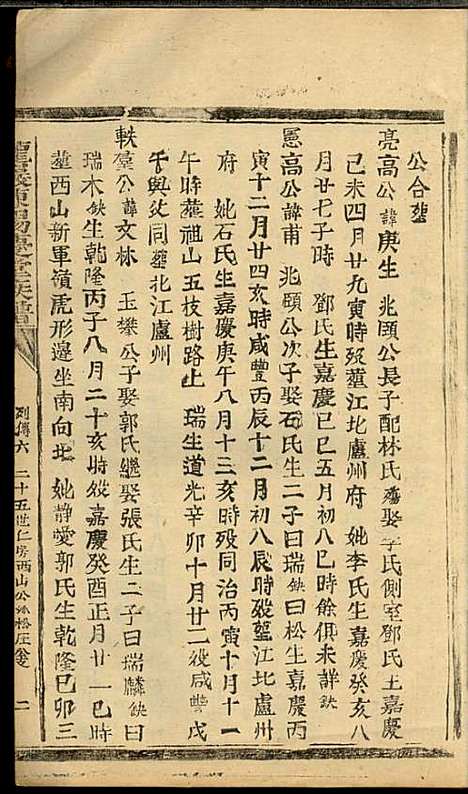 公合塋
亮高公諱庚生 兆頤公長子配林氏 娶李氏側室鄧氏王嘉慶
己未四月廿九寅時殁塟江北廬州府 妣李氏生嘉慶癸亥八
月廿七子時 鄧氏生嘉慶己巳五月初八巳時餘俱未詳缺
憲高公諱甫 兆頤公次子娶石氏生二子曰瑞缺曰松生嘉慶丙
寅十二月廿四亥時咸豐丙辰十二月初八辰時殁塟江北廬州
府 妣石氏生嘉慶庚午八月十三亥時殁同治丙寅十月十一
午時塟祖山五枝樹路上 瑞生道光辛卯十月廿二殁咸豐戊
午與父同塟北江廬州
軼羣公諱文林 玉樊公子娶郭氏繼娶張氏生二子曰瑞麟缺曰
瑞木缺生乾隆丙子八月二十亥時殁嘉慶癸酉正月廿一巳時
塟西山新軍嶺虎形邊坐南向北 妣靜愛郭氏生乾隆己卯三
列傳六 二十五世仁房西山公
二